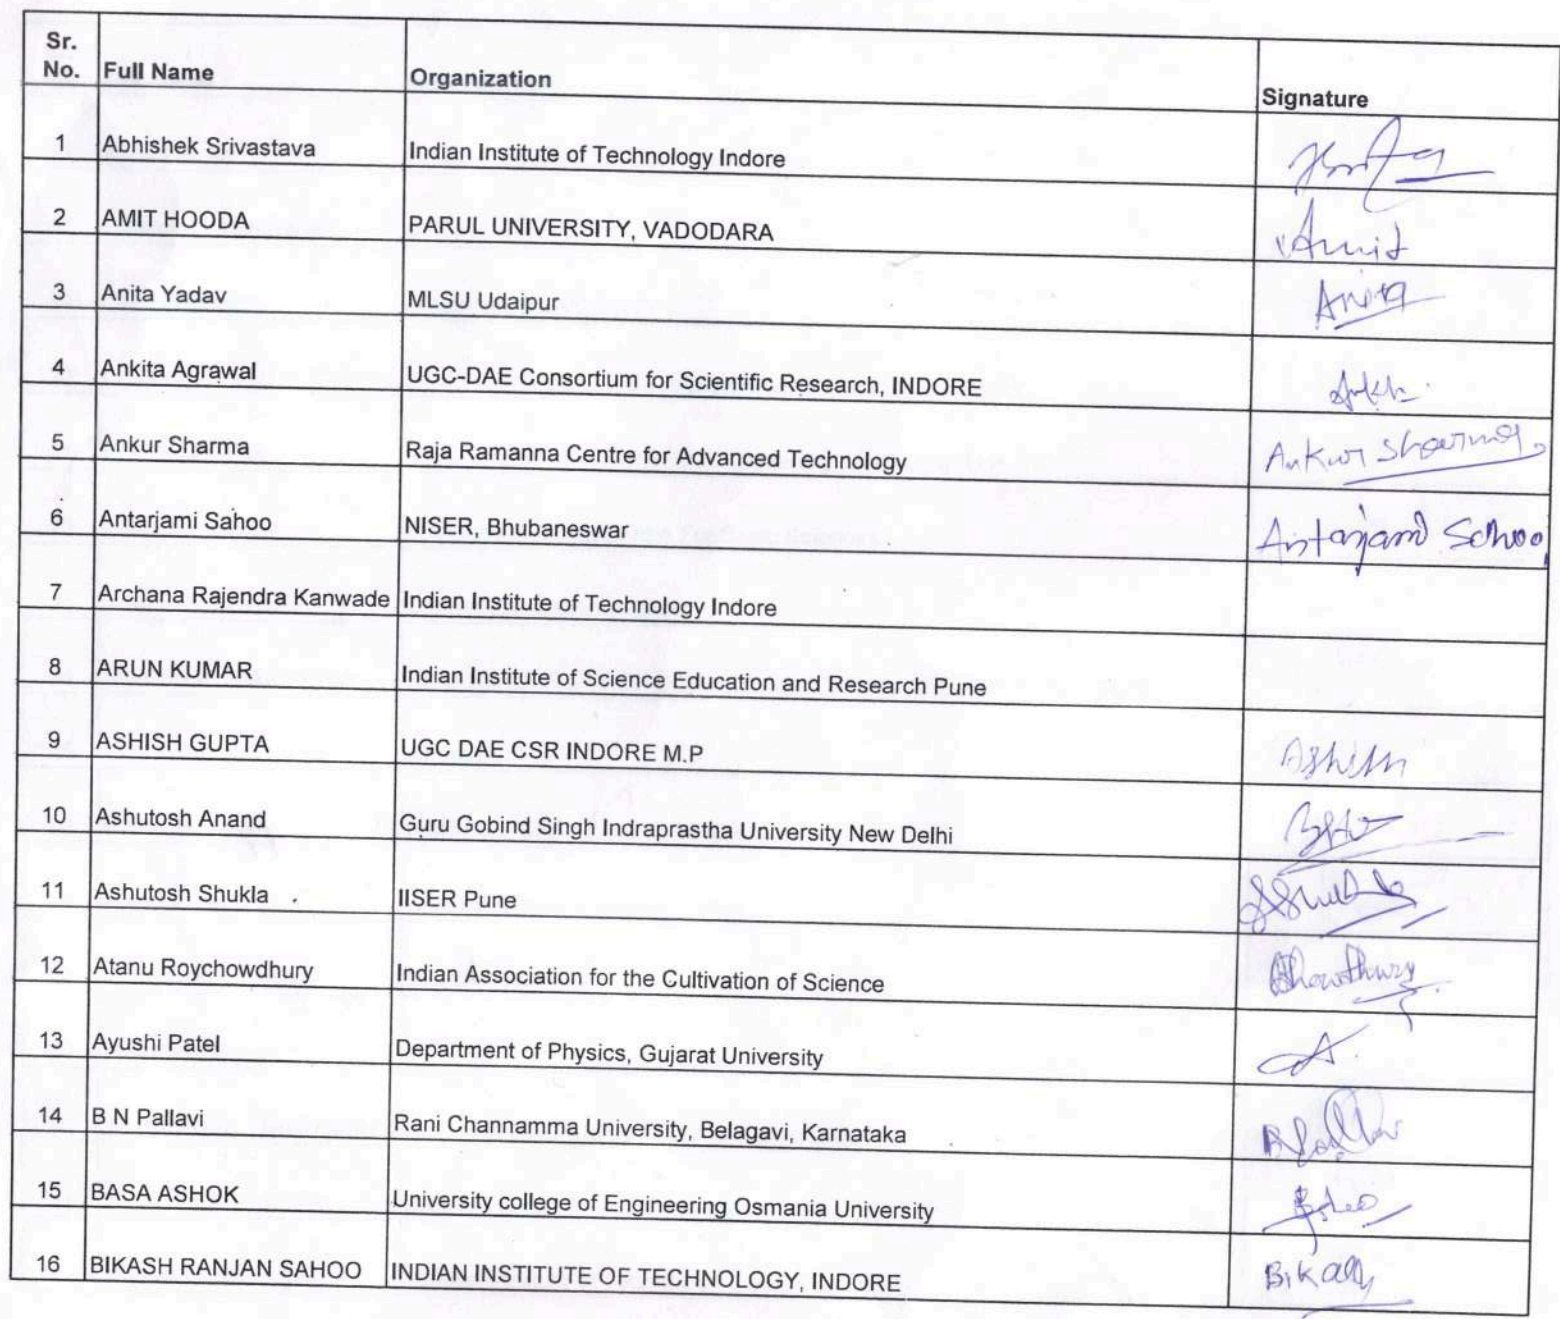 Sr. No. Full Name Organization Signature
1 Abhishek Srivastava Indian Institute of Technology Indore
2 AMIT HOODA PARUL UNIVERSITY, VADODARA Amit
3 Anita Yadav MLSU Udaipur Anita
4 Ankita Agrawal UGC-DAE Consortium for Scientific Research, INDORE
5 Ankur Sharma Raja Ramanna Centre for Advanced Technology Ankur Sharma
6 Antarjami Sahoo NISER, Bhubaneswar Antarjami Sahoo
7 Archana Rajendra Kanwade Indian Institute of Technology Indore
8 ARUN KUMAR Indian Institute of Science Education and Research Pune
9 ASHISH GUPTA UGC DAE CSR INDORE M.P Ashish
10 Ashutosh Anand Guru Gobind Singh Indraprastha University New Delhi
11 Ashutosh Shukla IISER Pune
12 Atanu Roychowdhury Indian Association for the Cultivation of Science
13 Ayushi Patel Department of Physics, Gujarat University
14 B N Pallavi Rani Channamma University, Belagavi, Karnataka
15 BASA ASHOK University college of Engineering Osmania University
16 BIKASH RANJAN SAHOO INDIAN INSTITUTE OF TECHNOLOGY, INDORE Bikash